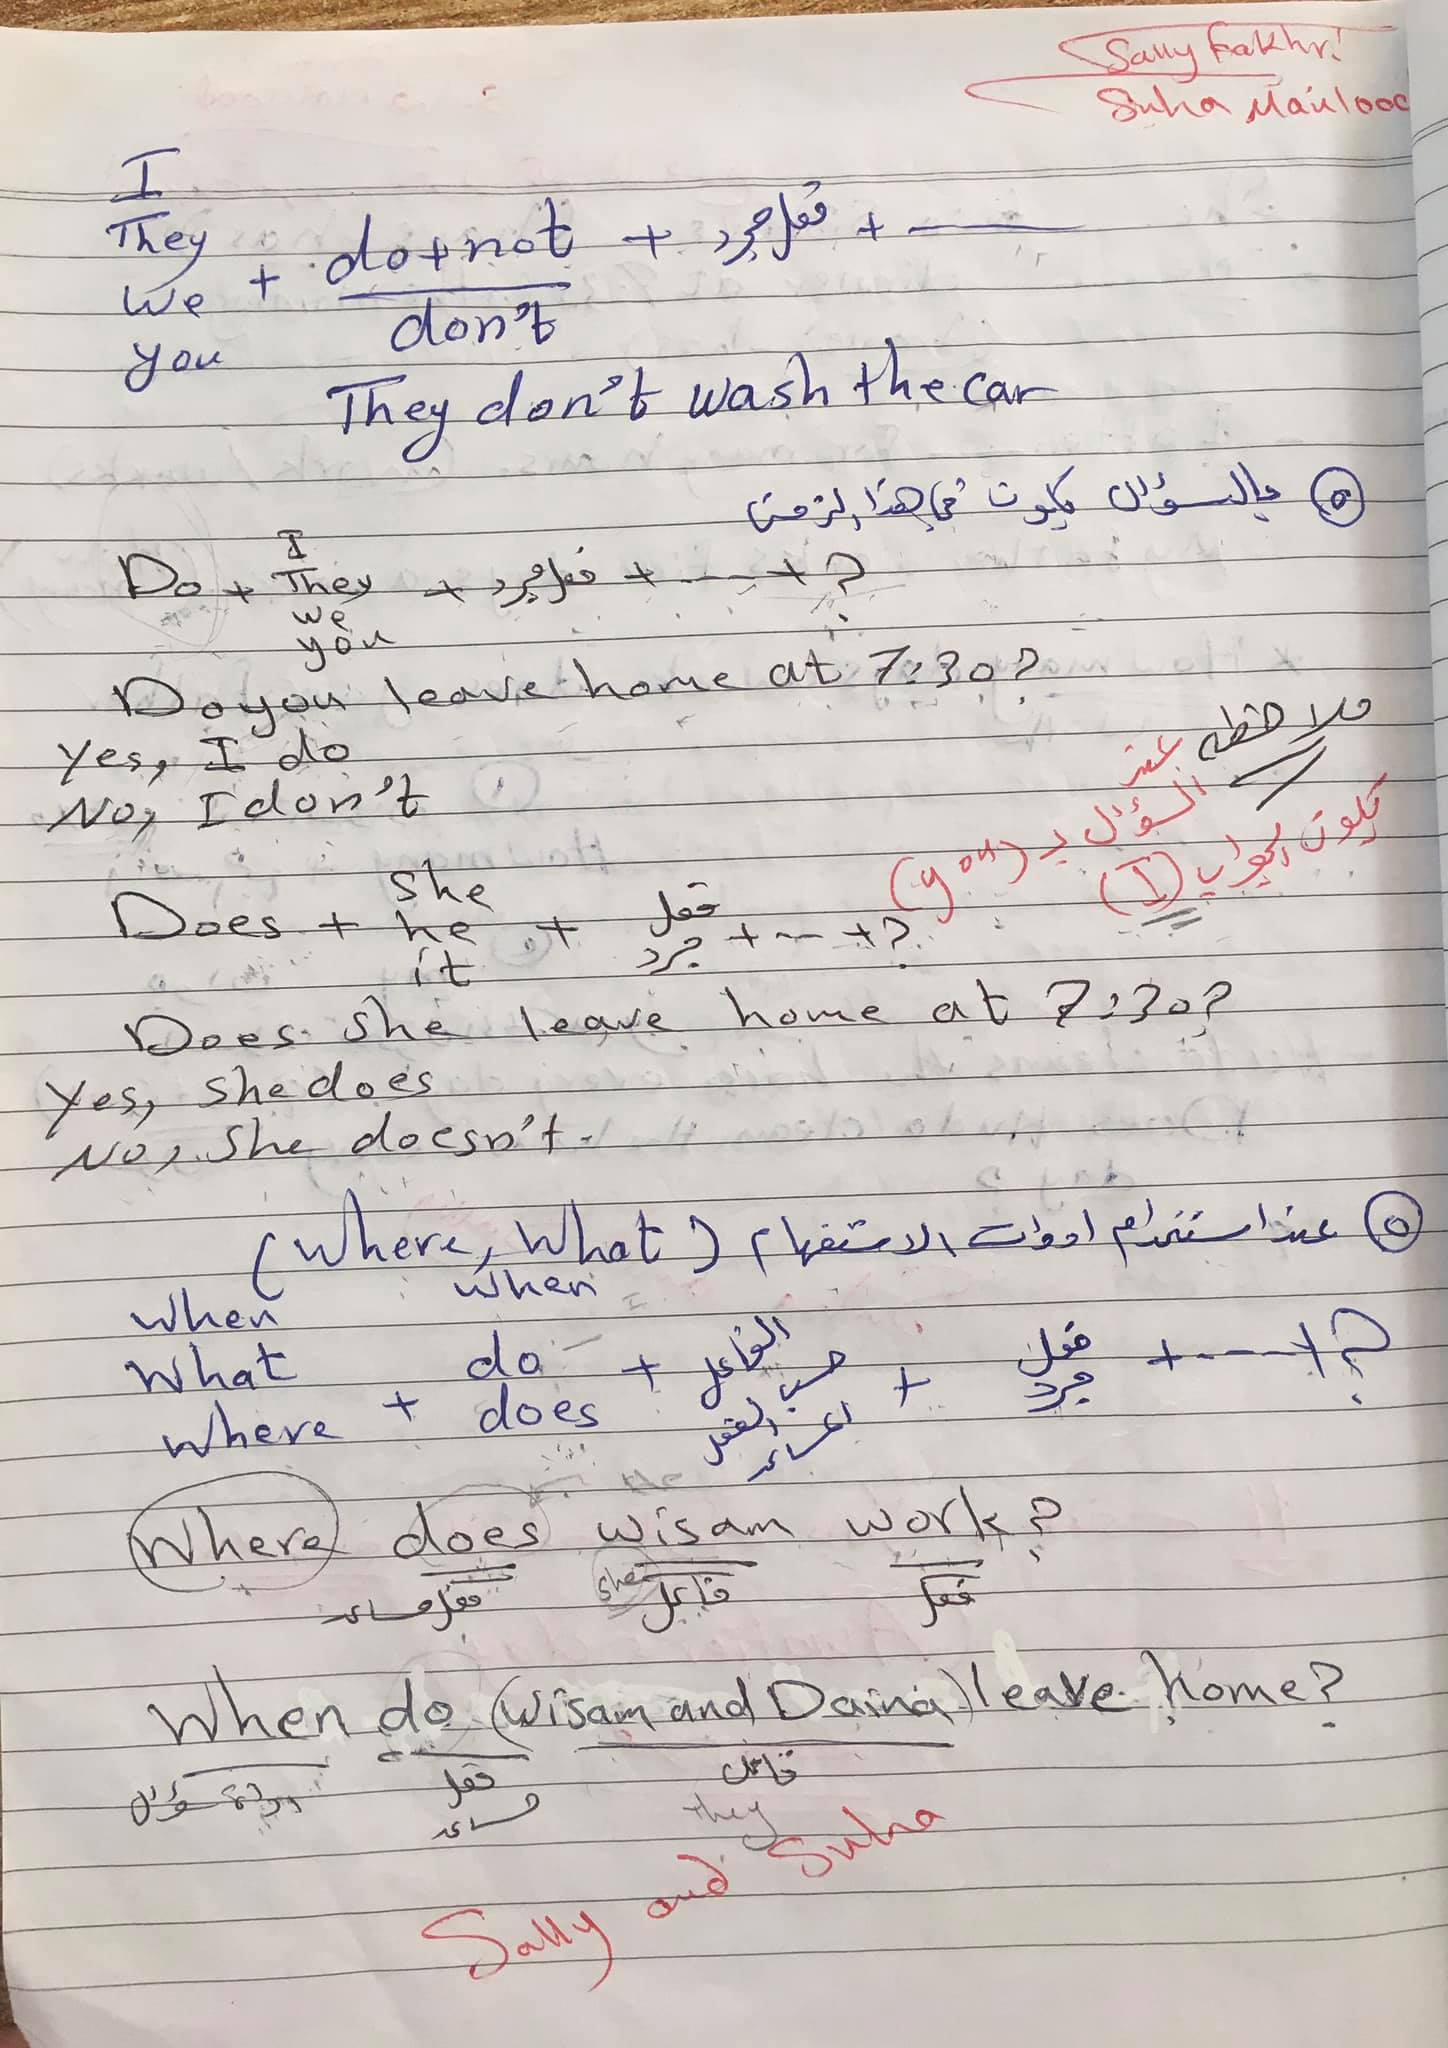 Sally Fakhri
Suha Maulood
I
They
we
you
+ do+not + فعل مجرد + ——
don't
They don't wash the car
بالسؤال يكون في هذا الزمن
Do + I + فعل مجرد + ---- + ?
They
we
you
Do you leave home at 7:30?
Yes, I do
No, I don't
ملاحظه عند
السؤال بـ (you)
يكون الجواب (I)
Does + she + فعل + --- + ?
he مجرد
it
Does she leave home at 7:30?
Yes, she does
No, she doesn't.
عند استخدام ادوات الاستفهام (Where, What)
when
when
What do + الفاعل + فعل + ---- + ?
where + does حسب مجرد
الفعل
مساعد
Where does wisam work?
فعل مساعد she فاعل فعل
When do (wisam and Daina) leave home?
اداة سؤال فعل فاعل
مساعد they
Sally and Suha